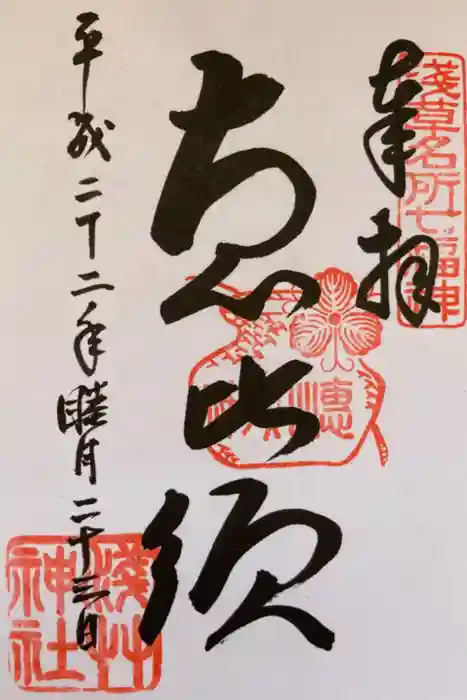 淺草名所七福神
奉拝
恵比須
平成二十二年睦月二十三日
淺艸
神社